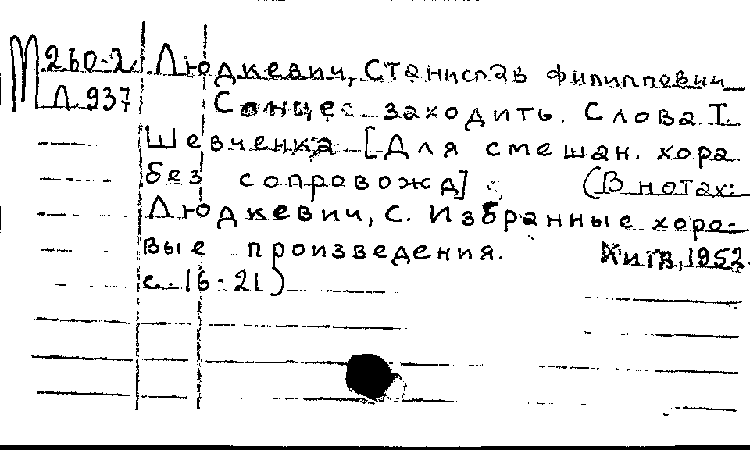 М 260-2 Людкевич, Станислав Филиппович
Л 937 Сонце заходить. Слова Т.
Шевченка [Для смешан. хора
без сопровожд] (В нотах:
Людкевич, С. Избранные хоро-
вые произведения. Київ, 1952.
с. 16-21)